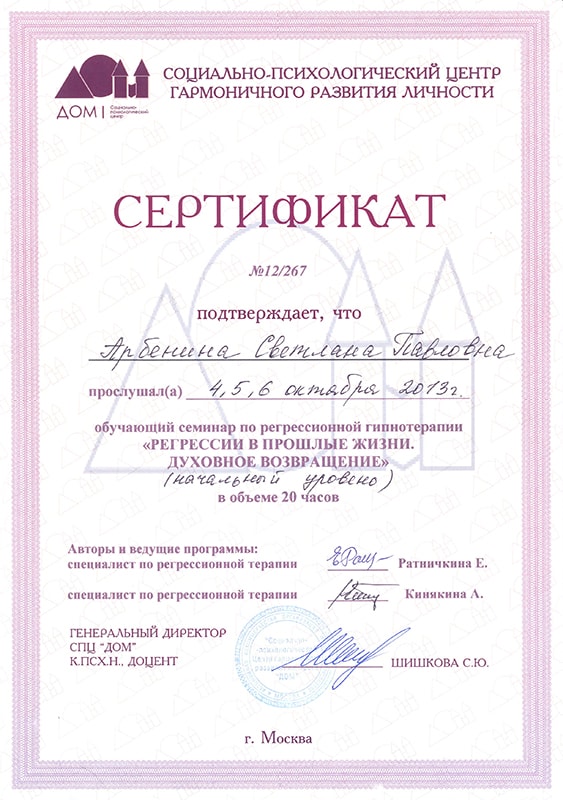 СОЦИАЛЬНО-ПСИХОЛОГИЧЕСКИЙ ЦЕНТР
ГАРМОНИЧНОГО РАЗВИТИЯ ЛИЧНОСТИ
ДОМ
Социально-
психологический
центр
СЕРТИФИКАТ
№12/267
подтверждает, что
Арбенина Светлана Павловна
прослушал(а) 4, 5, 6 октября 2013г.
обучающий семинар по регрессионной гипнотерапии
«РЕГРЕССИИ В ПРОШЛЫЕ ЖИЗНИ.
ДУХОВНОЕ ВОЗВРАЩЕНИЕ»
(начальный уровень)
в объеме 20 часов
Авторы и ведущие программы:
специалист по регрессионной терапии Ратничкина Е.
специалист по регрессионной терапии Кинякина А.
ГЕНЕРАЛЬНЫЙ ДИРЕКТОР
СПЦ "ДОМ"
К.ПСХ.Н., ДОЦЕНТ ШИШКОВА С.Ю.
г. Москва